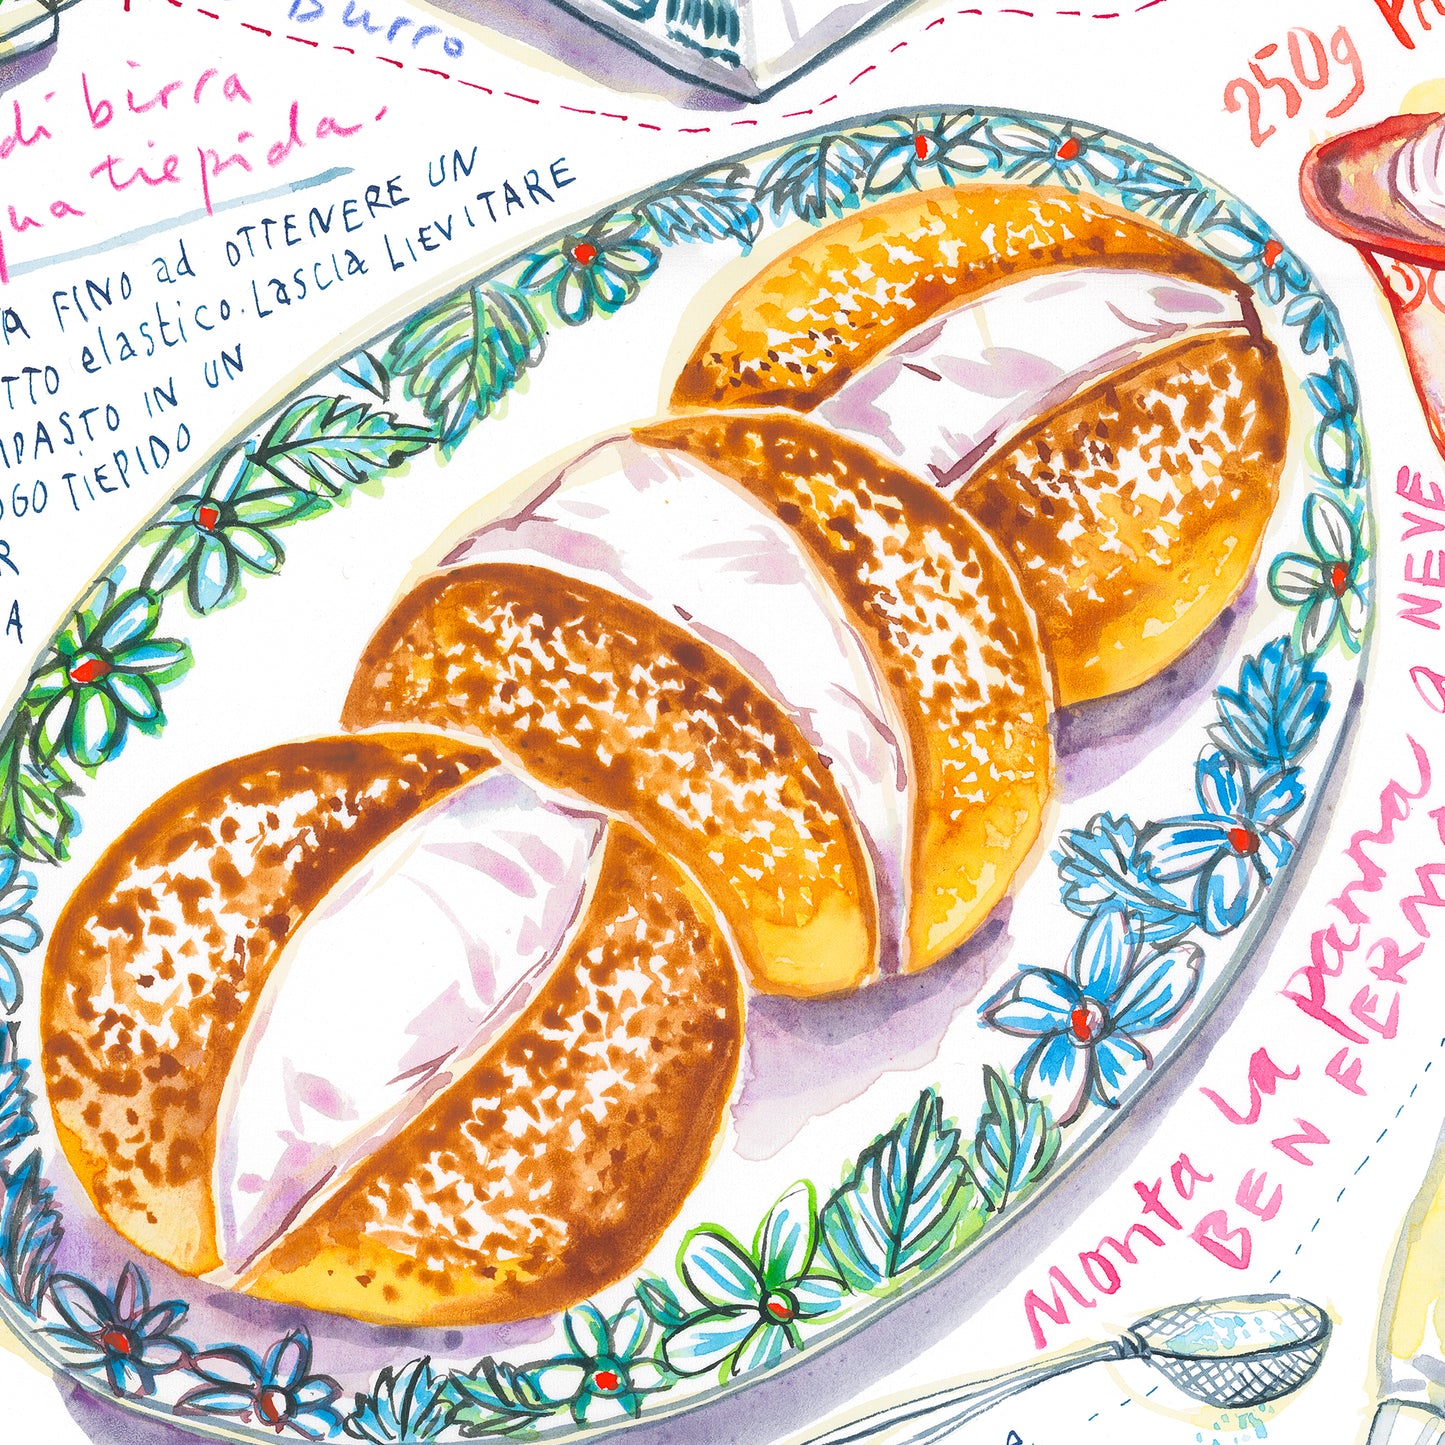 Burro
di birra
tiepida.
FINO ad OTTENERE UN
elastico. LASCIA LIEVITARE
IN UN
TIEPIDO
R
A
250g
Monta La panna a NEVE
BEN FERMA